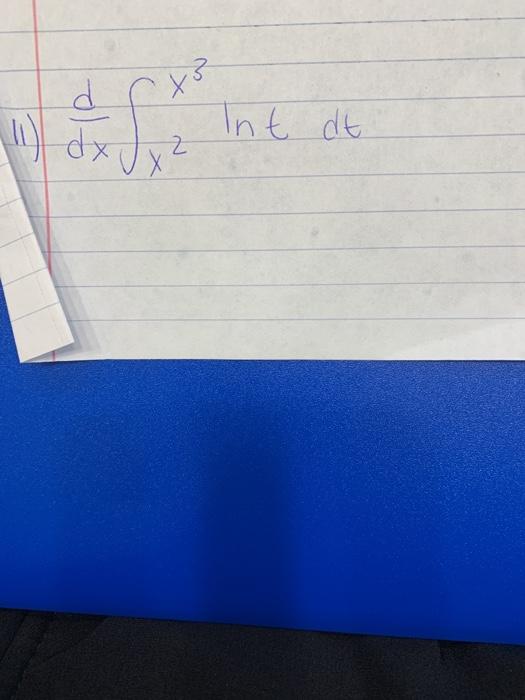 11) d/dx ∫_{x^2}^{x^3} ln t dt